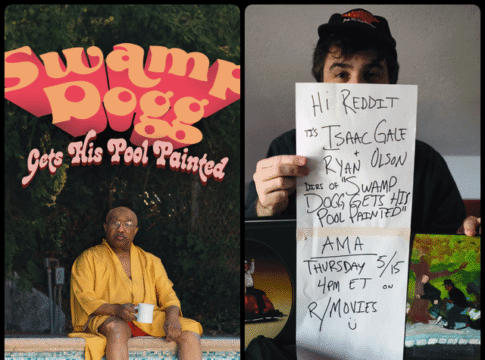 Swamp
Dogg
Gets His Pool Painted
Hi REDDIT
IT'S ISAAC GALE
+
RYAN OLSON
DIRS OF "SWAMP
DOGG GETS HIS
POOL PAINTED"
AMA
THURSDAY 5/15
4PM ET ON
R/MOVIES